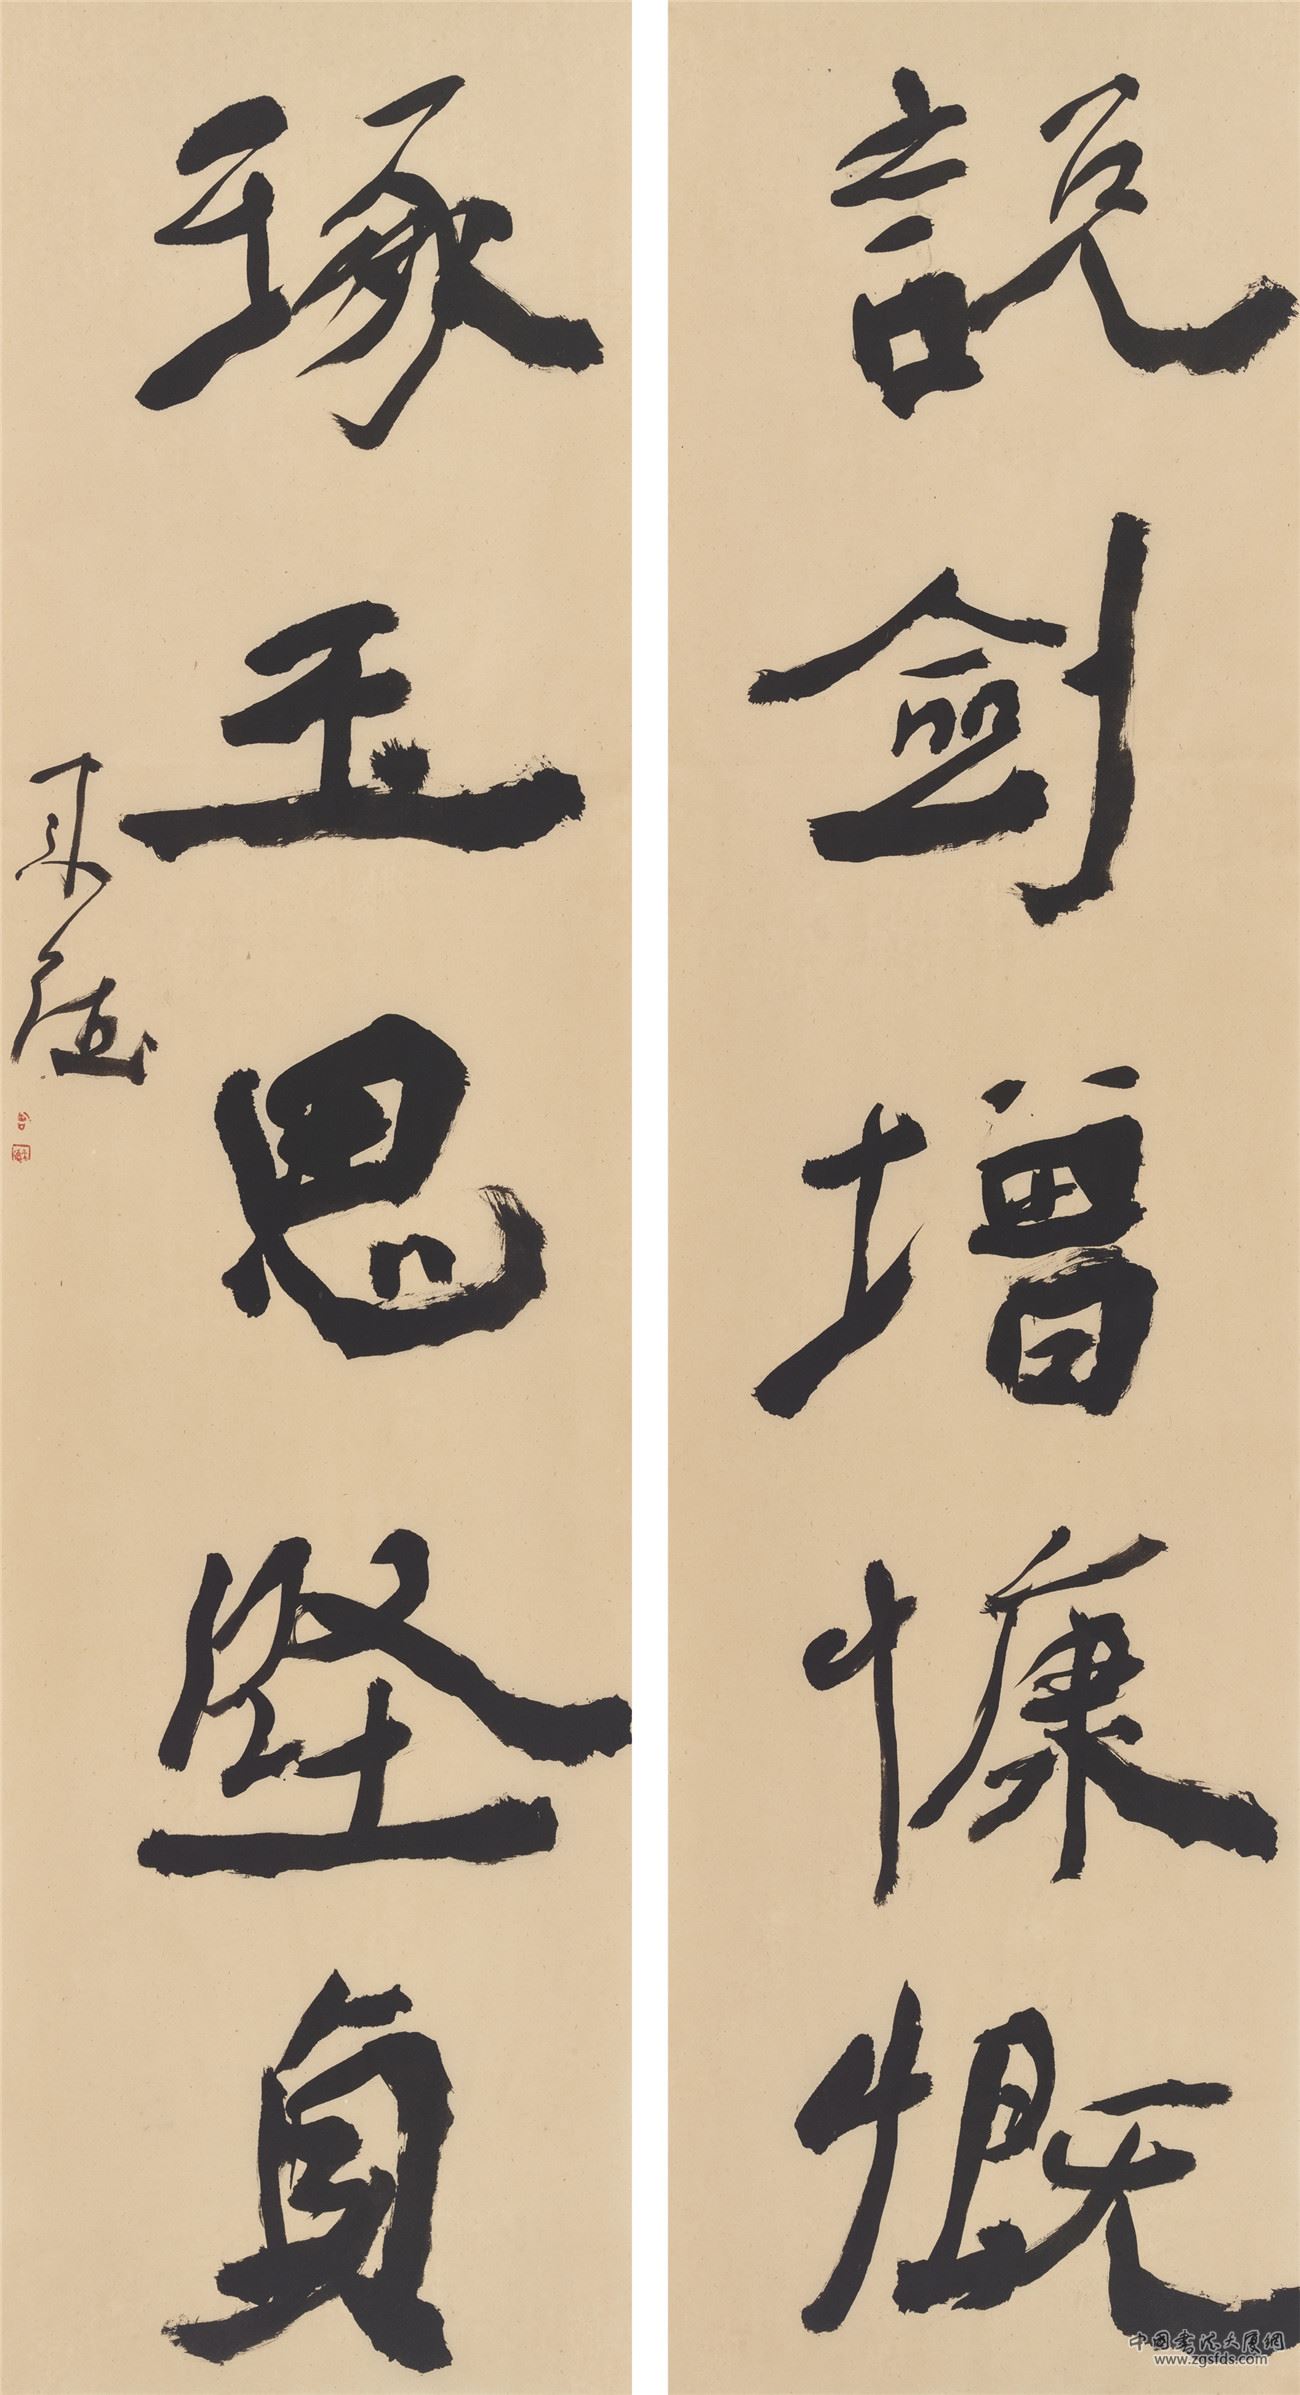 說劍增慷慨
琢玉思堅貞
中国书法大厦网
www.zgsfds.com